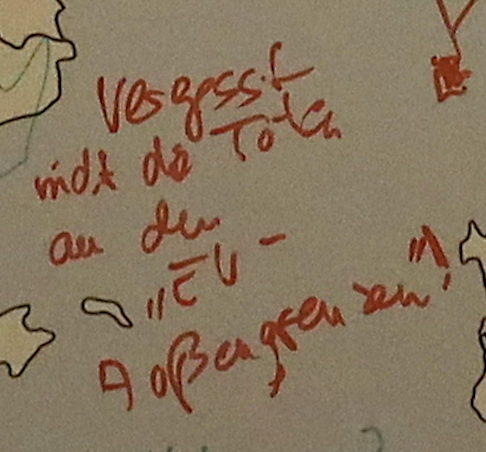 Vergesst
nicht die Toten
an den
„EU-
Außengrenzen"!